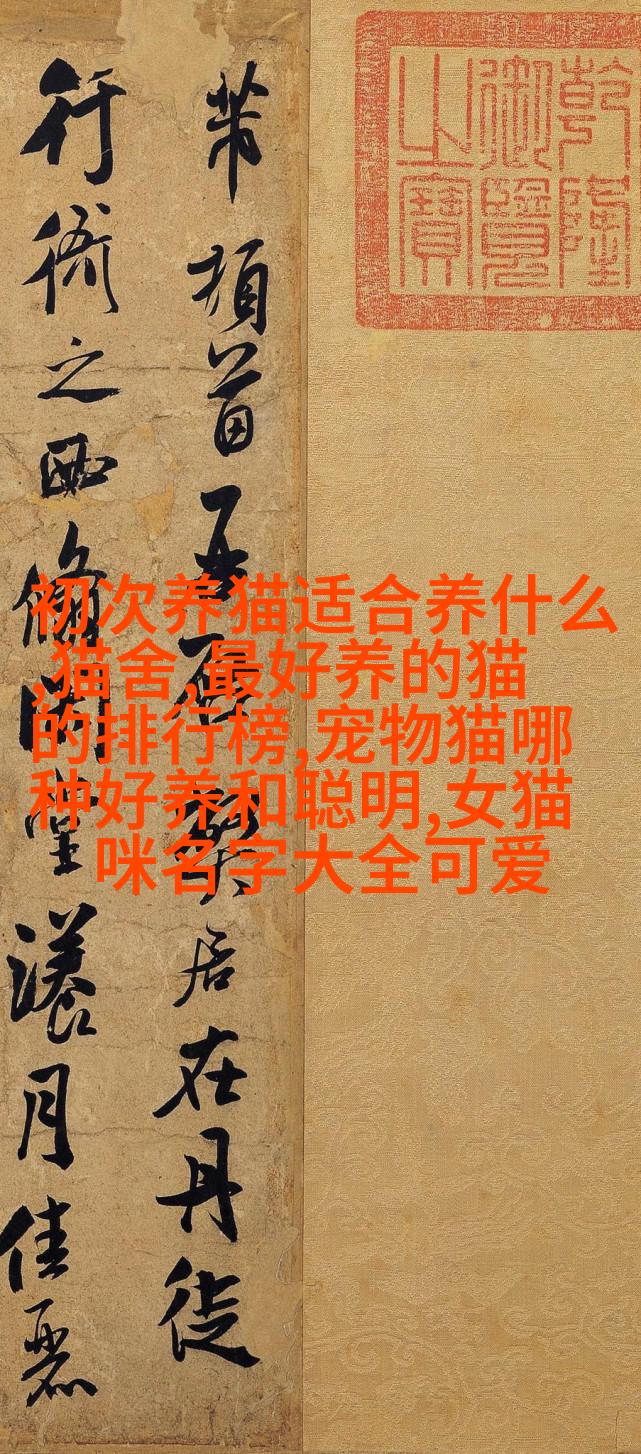 乾隆
御覽
之寶
芾頓首再啓弊居在丹徒
行衙之西翛閑堂漾月佳麗
初次养猫适合养什么
,猫舍,最好养的猫
的排行榜,宠物猫哪
种好养和聪明,女猫
咪名字大全可爱